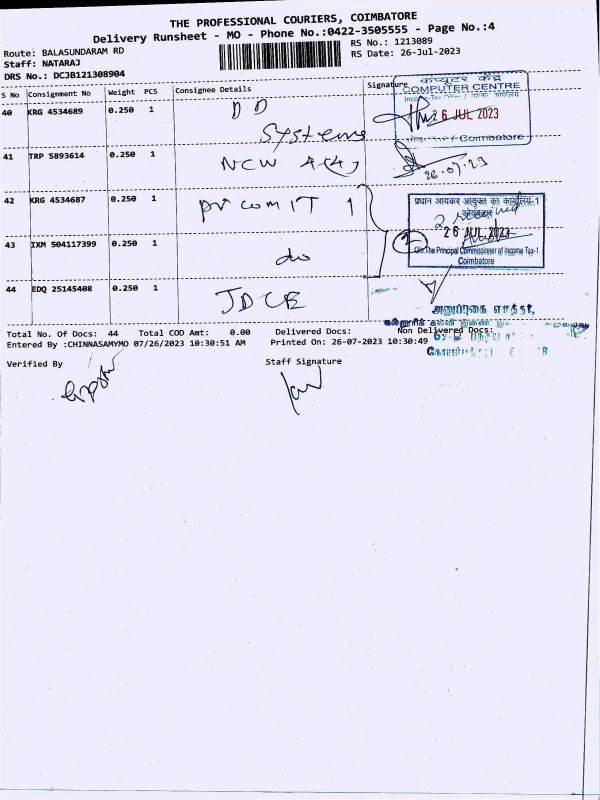 THE PROFESSIONAL COURIERS, COIMBATORE
Delivery Runsheet - MO - Phone No.:0422-3505555 - Page No.:4
Route: BALASUNDARAM RD
RS No.: 1213089
Staff: NATARAJ
RS Date: 26-Jul-2023
DRS No.: DCJB121308904
S No Consignment No Weight PCS Consignee Details Signature
कंप्यूटर केंद्र
COMPUTER CENTRE
26 JUL 2023
Coimbatore
40 KRG 4534689 0.250 1 DD
Systems
41 TRP 5893614 0.250 1 NCW
26.07.23
42 KRG 4534687 0.250 1 pr com IT 1
प्रधान आयकर आयुक्त का कार्यालय-1
2 received
26 JUL 2023
O/o.The Principal Commissioner of Income Tax-1
Coimbatore
43 IXM 504117399 0.250 1 do
2
44 EDQ 25145408 0.250 1 JDCE
Total No. Of Docs: 44 Total COD Amt: 0.00 Delivered Docs: Non Delivered Docs:
Entered By :CHINNASAMYMO 07/26/2023 10:30:51 AM Printed On: 26-07-2023 10:30:49
Verified By Staff Signature